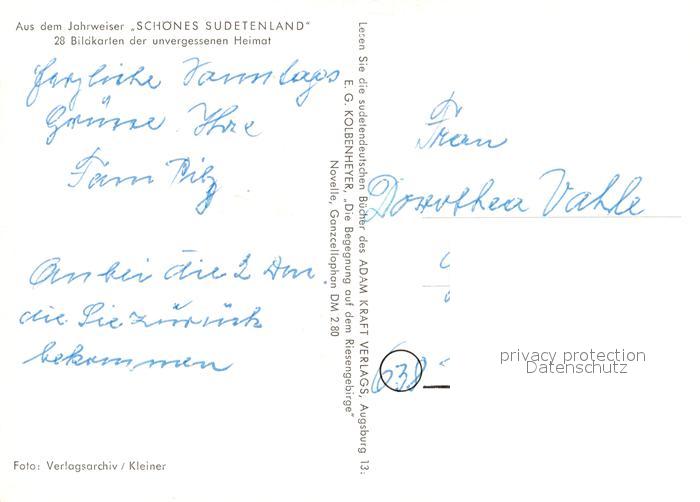 Aus dem Jahrweiser „SCHÖNES SUDETENLAND“
28 Bildkarten der unvergessenen Heimat
Herzliche Sonntags
Grüsse Ihre
Fam Pilz
Anbei die 2 Dm.
die Sie zürück
bekommen
Foto: Verlagsarchiv / Kleiner
Lesen Sie die sudetendeutschen Bücher des ADAM KRAFT VERLAGS, Augsburg 13:
E. G. KOLBENHEYER, „Die Begegnung auf dem Riesengebirge“
Novelle, Ganzcellophan DM 2.80
Frau
Dorothea Vahle
638
privacy protection
Datenschutz